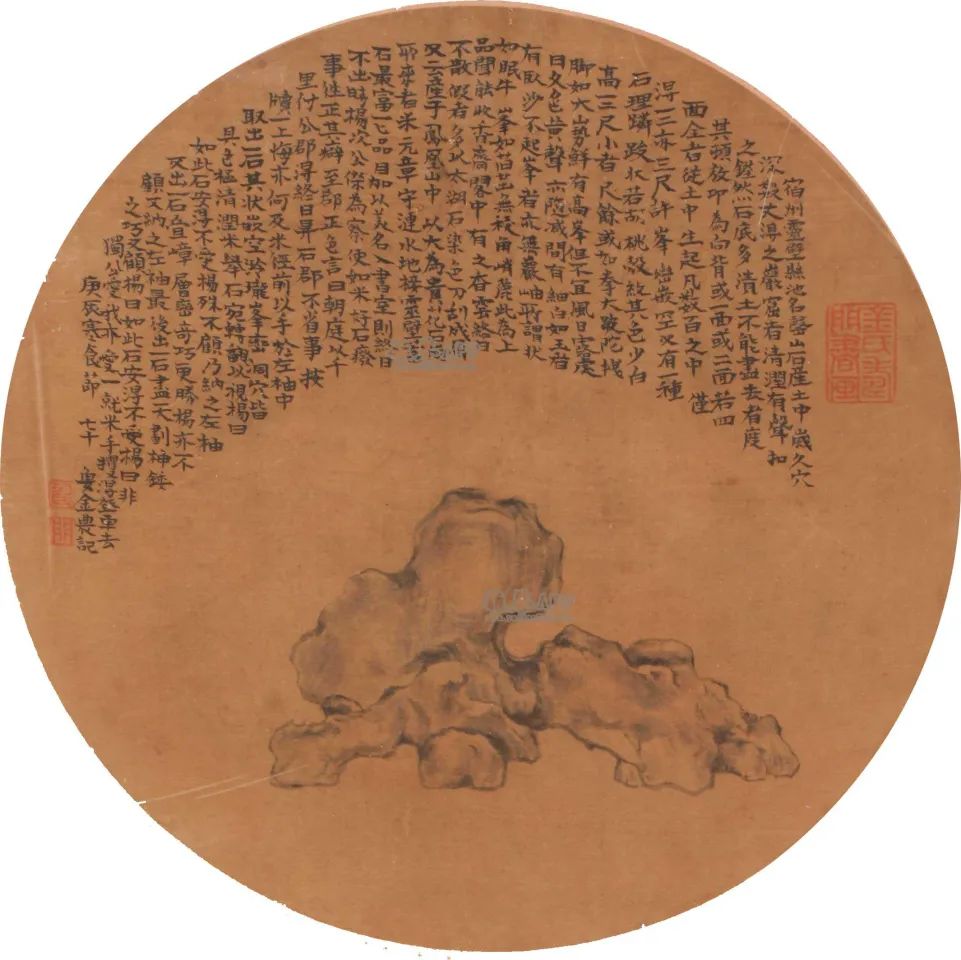 宿州靈壁縣地名磬山石產土中歲久穴
深數丈得之巖窟者清潤有聲扣
之鏗然石底多清土不能盡去者度
其頓放即為向背或一面或二面若四
面全者從土中生起凡數百之中僅
得一二亦二三尺許峯巒嵌空又有一種
石理燐跛狀若胡桃殼紋其色少白
高一二尺小者尺餘或如拳大跛陀拽
脚如大山勢鮮有高峯但不宜風日露處
日久色皆聲亦隨減間有細白如玉者
有臥沙不起峯者亦無巖岫所謂狀
如眠牛峯如菩無枝角峭麗此為上
品閒能收香齋閣中有之香雲終日
不散假者多以太湖石染色刀刮成
又云產于鳳凰山中以大為貴花石
所來者米元章守漣水地接靈壁
石最富一一品目加以美名入書室則終日
不出時楊次公傑為察使知米好石廢
事往正其癖至郡正色言曰朝廷以千
里付公郡得終日弄石郡不省事按
牘一上悔亦何及米徑前以手於左袖中
取出一石其狀嵌空玲瓏峯巒洞穴皆
具色極清潤米舉石宛轉翻以視楊曰
如此石安得不愛楊殊不顧乃納之左袖
又出一石疊嶂層巒奇巧更勝楊亦不
顧又納之左袖最後出一石盡天劃神鏤
之巧又顧楊曰如此石安得不愛楊曰非
獨公愛我亦愛一就米手攫得登車去
庚辰寒食節 七十叟金農記